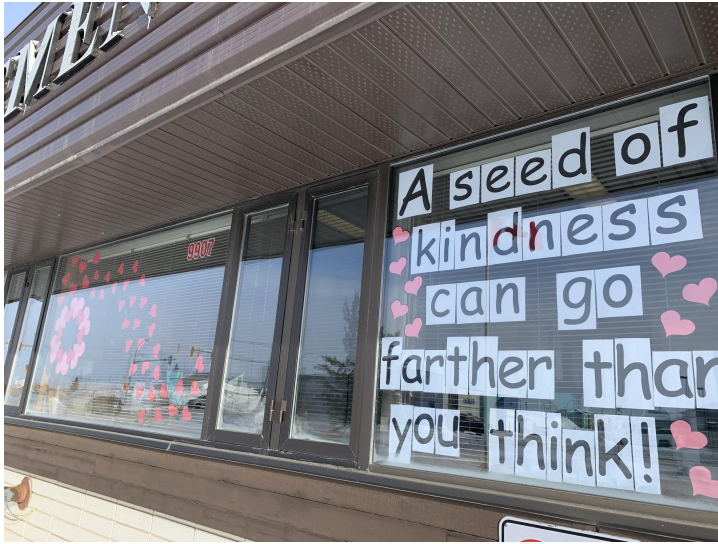 9907
A seed of
kindness
can go
farther than
you think!